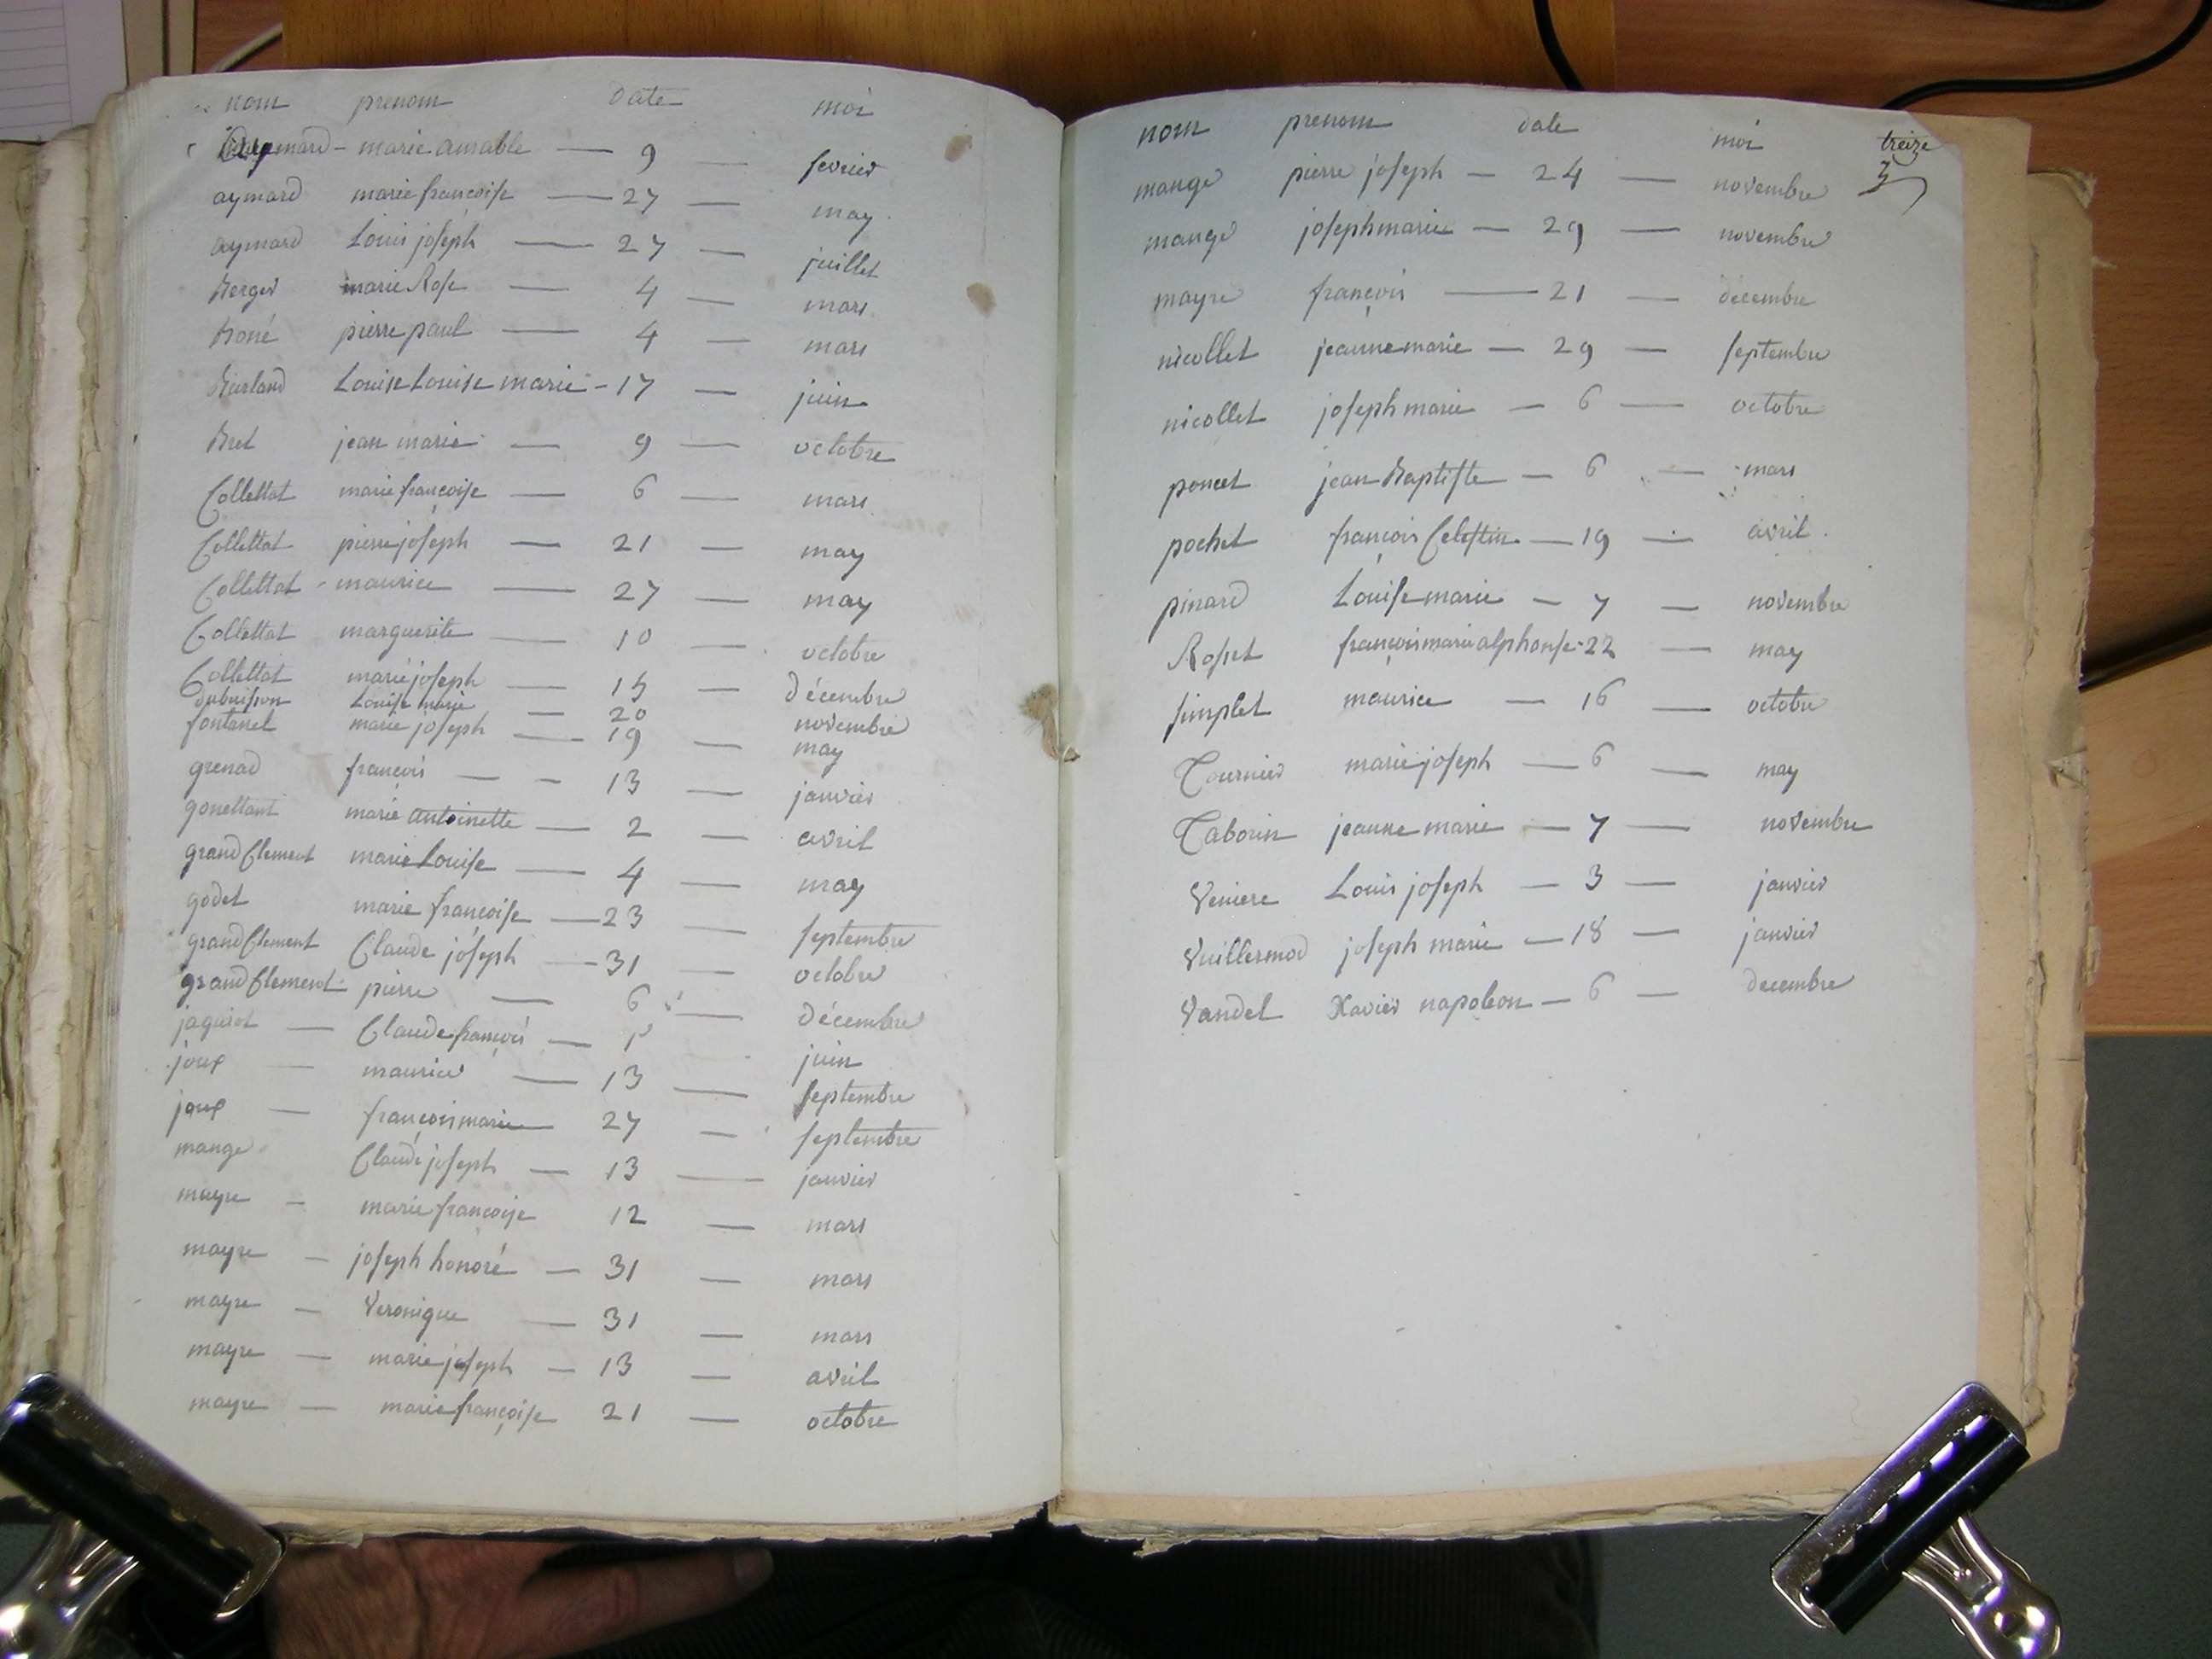 nom prenom date moi
aymard - marie aimable — 9 — fevrier
aymard marie francoise — 27 — may
aymard Louis joseph — 27 — juillet
Berger marie Rose — 4 — mars
boné pierre paul — 4 — mars
Louise Louise marie - 17 — juin
Bret jean marie — 9 — octobre
Collettat marie françoise — 6 — mars
Collettat pierre joseph — 21 — may
Collettat - maurice — 27 — may
Collettat marguerite — 10 — octobre
Collettat marie joseph — 15 — décembre
dubuisson Louise marie — 20 novembre
fontanel marie joseph — 19 — may
grenad francois — - 13 — janvier
gonettant marie antoinette — 2 — avril
grand Clement marie Louise — 4 — may
godet marie françoise — 23 — septembre
grand Clement Claude joseph — 31 — octobre
grand Clement pierre — 6 — décembre
jaquiot — Claude françois — 1 juin
joux — maurice — 13 — septembre
joux — françois marie 27 — septembre
mange Claude joseph — 13 — janvier
mayre — marie francoise 12 — mars
mayre — joseph honoré — 31 — mars
mayre — Veronique — 31 — mars
mayre — marie joseph — 13 — avril
mayre — marie françoise 21 — octobre
nom prenom date moi treize
mange pierre joseph — 24 — novembre
mange joseph marie — 29 — novembre
mayre françois — 21 — décembre
nicollet jeanne marie — 29 — septembre
nicollet joseph marie — 6 — octobre
poncet jean Baptiste — 6 — mars
pochet françois Celestin — 19 — avril
pinard Louise marie — 7 — novembre
Roset françois marie alphonse - 22 — may
simplet maurice — 16 — octobre
Tournier marie joseph — 6 — may
Taborin jeanne marie — 7 — novembre
Veniere Louis joseph — 3 — janvier
Vuillermod joseph marie — 18 — janvier
Vandel Xavier napoleon — 6 — decembre